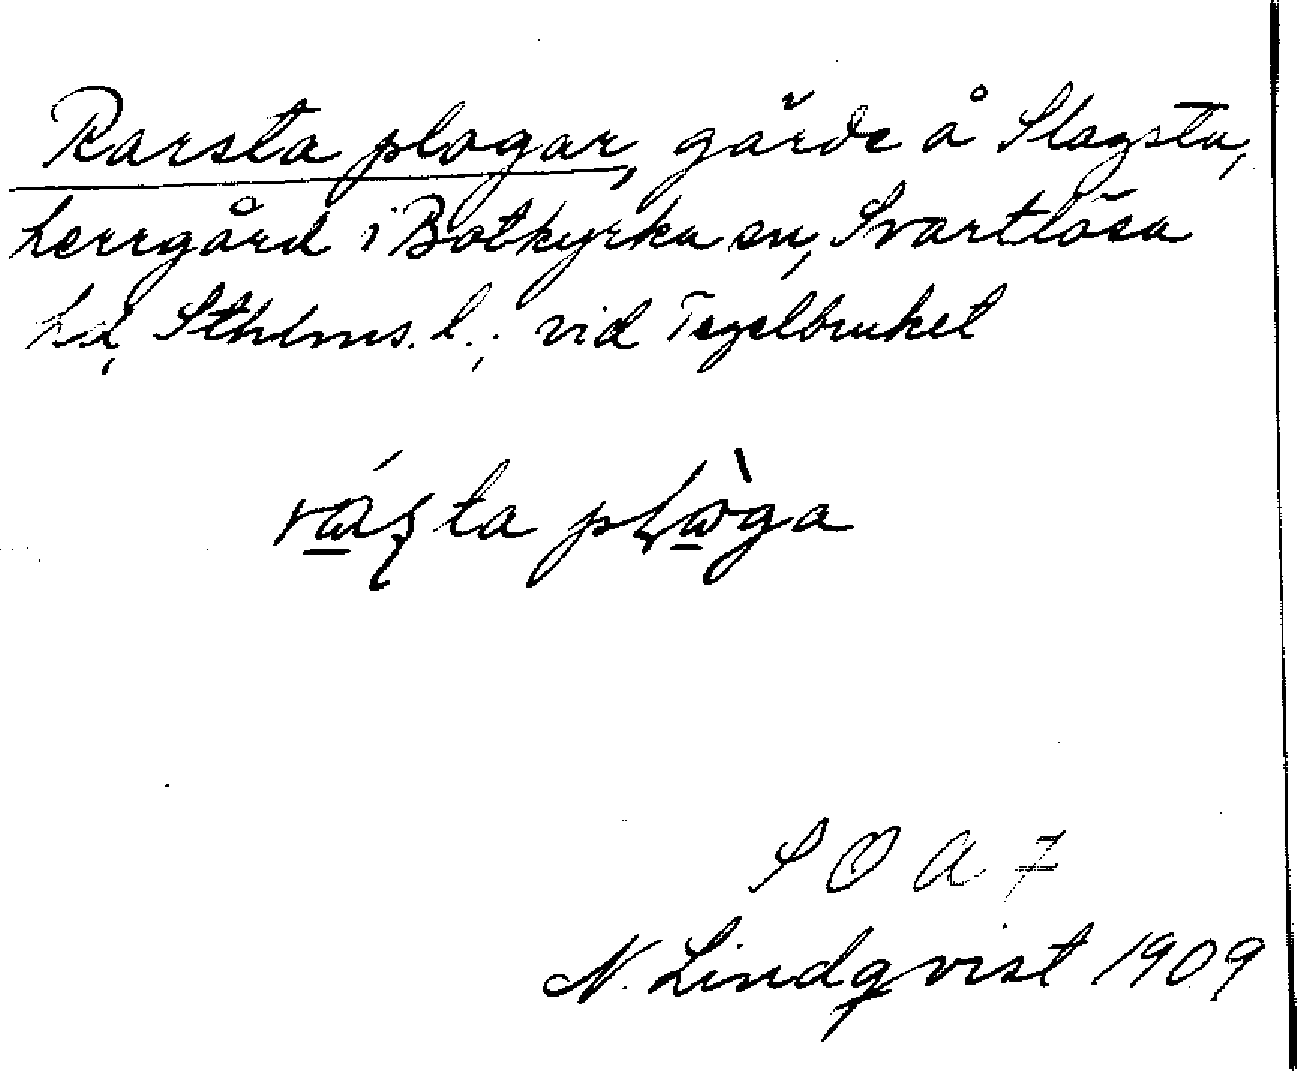 Rarsta plogar, gärde å Slagsta,
herrgård i Botkyrka sn, Svartlösa
hd, Sthlms. l.; vid Tegelbruket
plⱥga
S O A 7
N. Lindqvist 1909